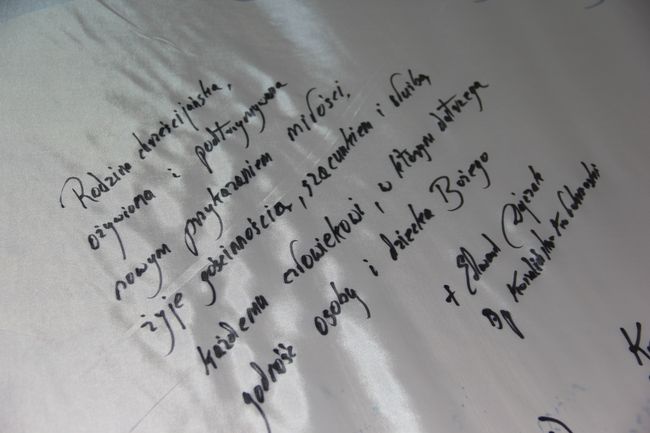 Rodzina chrześcijańska,
ożywiona i podtrzymywana
nowym przykazaniem miłości,
żyje gościnnością, szacunkiem i służbą
każdemu człowiekowi, w którym dostrzega
godność osoby i dziecka Bożego
+ Edward
Bp